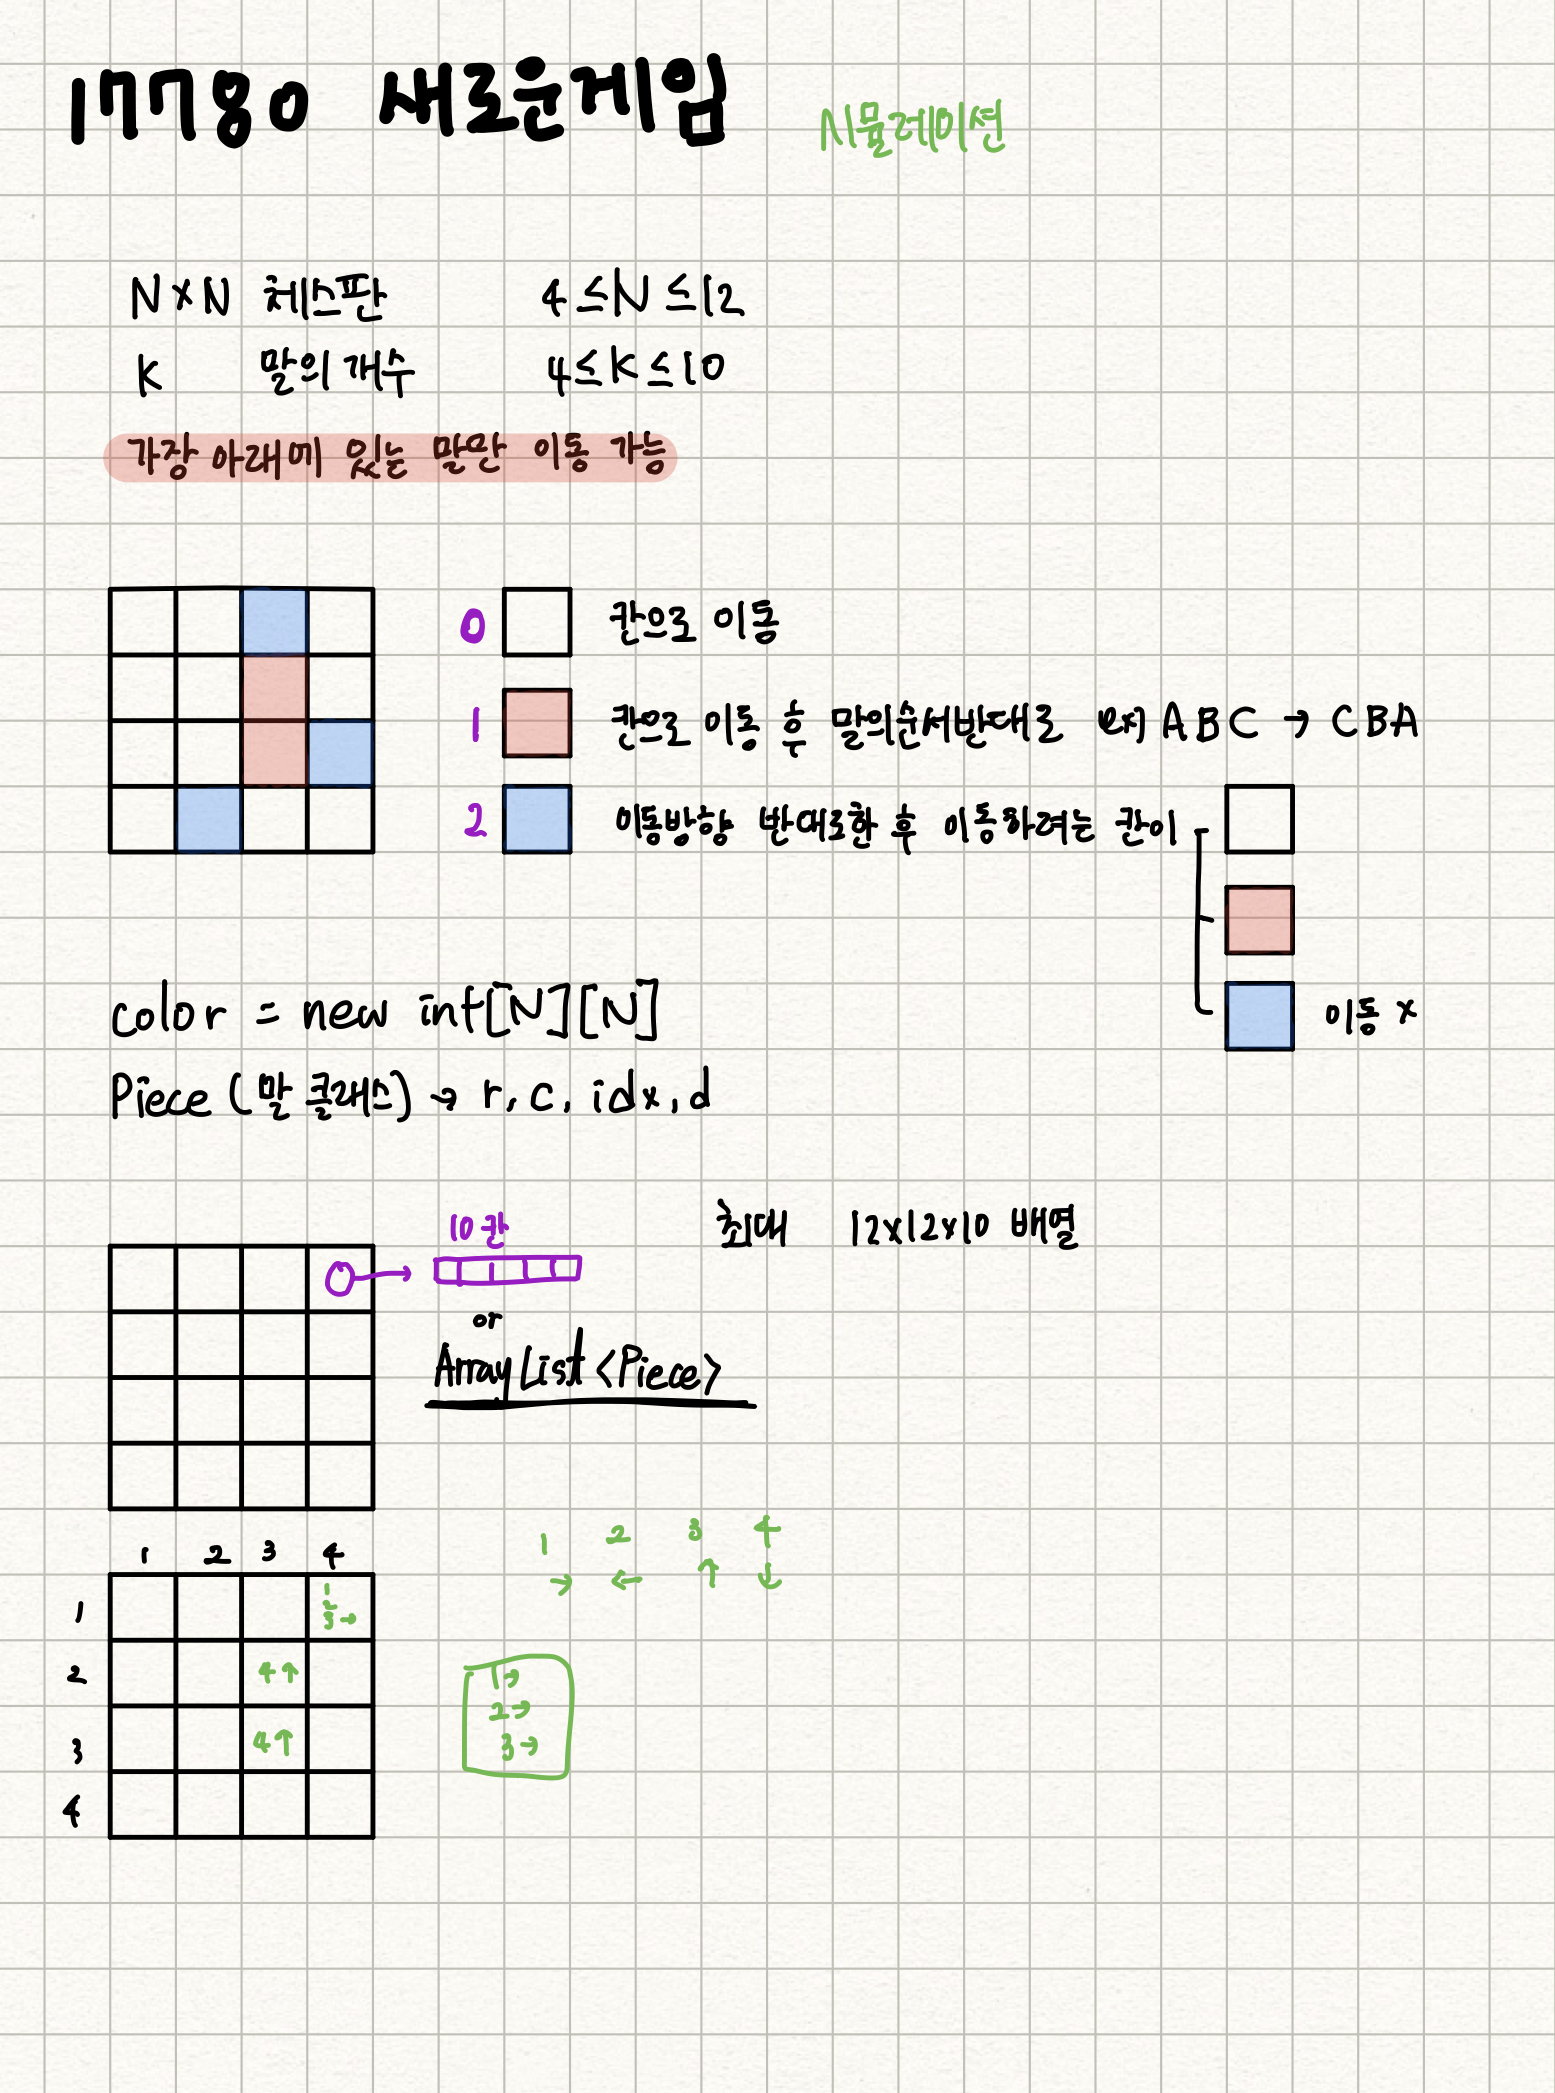 17780 새로운게임 시뮬레이션
N×N 체스판 4≤N≤12
K 말의 개수 4≤K≤10
가장 아래에 있는 말만 이동 가능
0 칸으로 이동
1 칸으로 이동 후 말의순서반대로 ex) A B C → C B A
2 이동방향 반대로한 후 이동하려는 칸이
이동 x
color = new int[N][N]
Piece (말 클래스) → r, c, idx, d
10칸 최대 12x12x10 배열
or
ArrayList<Piece>
1 2 3 4
→ ← ↑ ↓
1 2 3 4
1
1
2
3→
2 4↑
3 4↑
4
1→
2→
3→